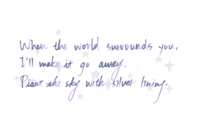 When the world surrounds you,
I'll make it go away.
Paint the sky with silver lining.